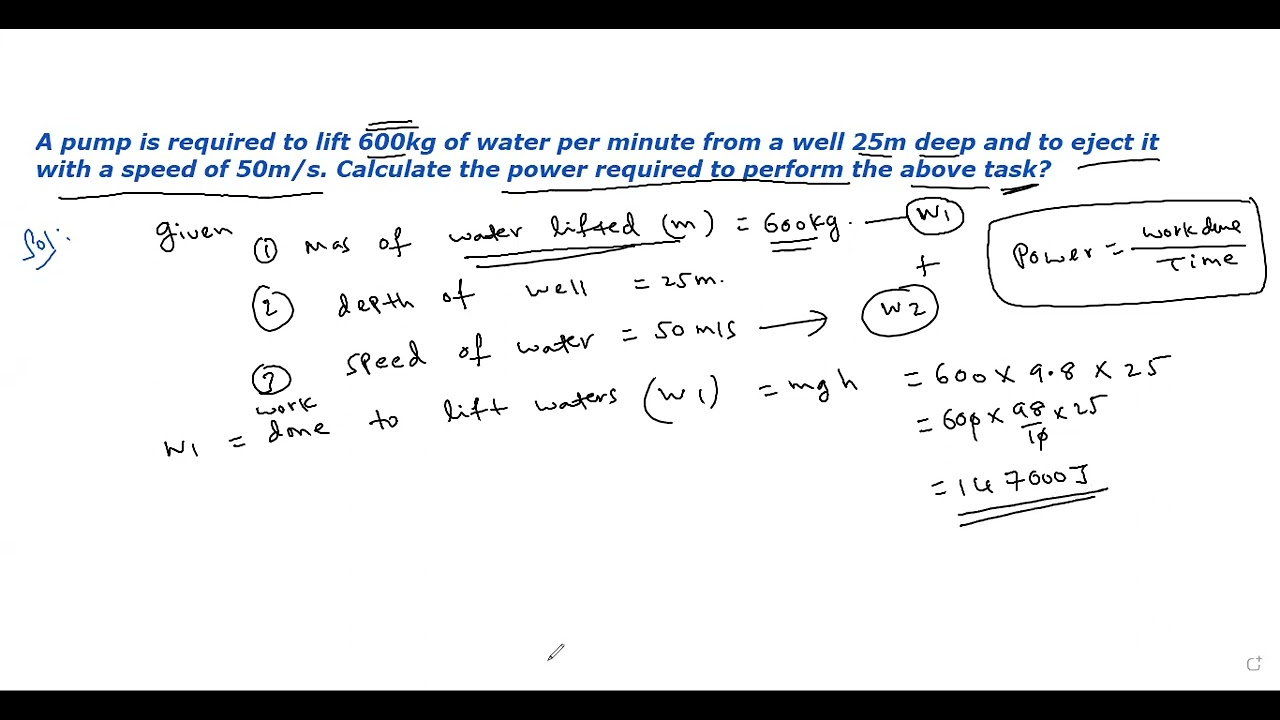 A pump is required to lift 600kg of water per minute from a well 25m deep and to eject it
with a speed of 50m/s. Calculate the power required to perform the above task?
Sol:
given
① mas of water lifted (m) = 600kg. — W1
+
Power = work done / Time
② depth of well = 25m.
W2
③ speed of water = 50 m/s →
W1 = work done to lift waters (W1) = mgh = 600 × 9.8 × 25
= 600 × 98/10 × 25
= 147000J